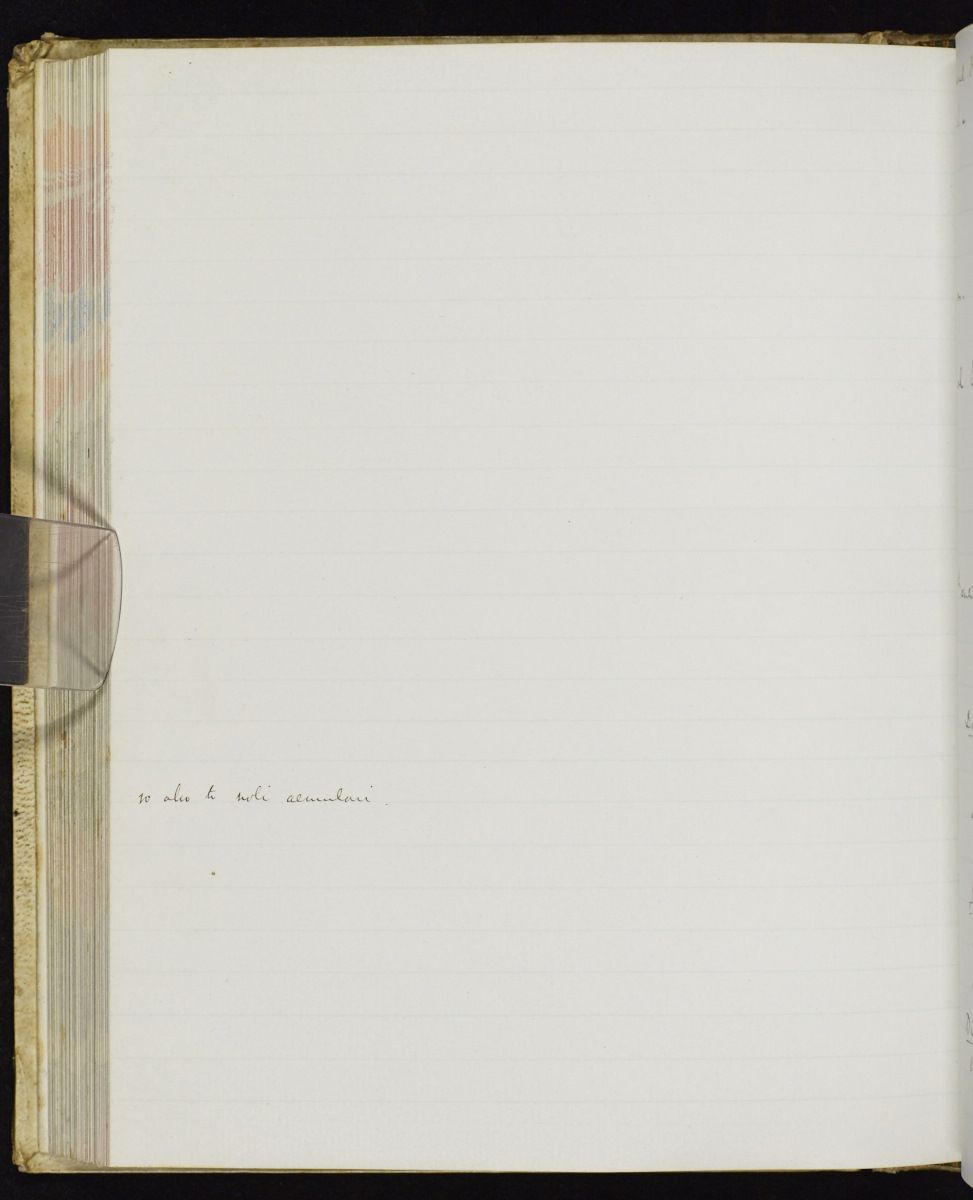 so also to noli aemulari.